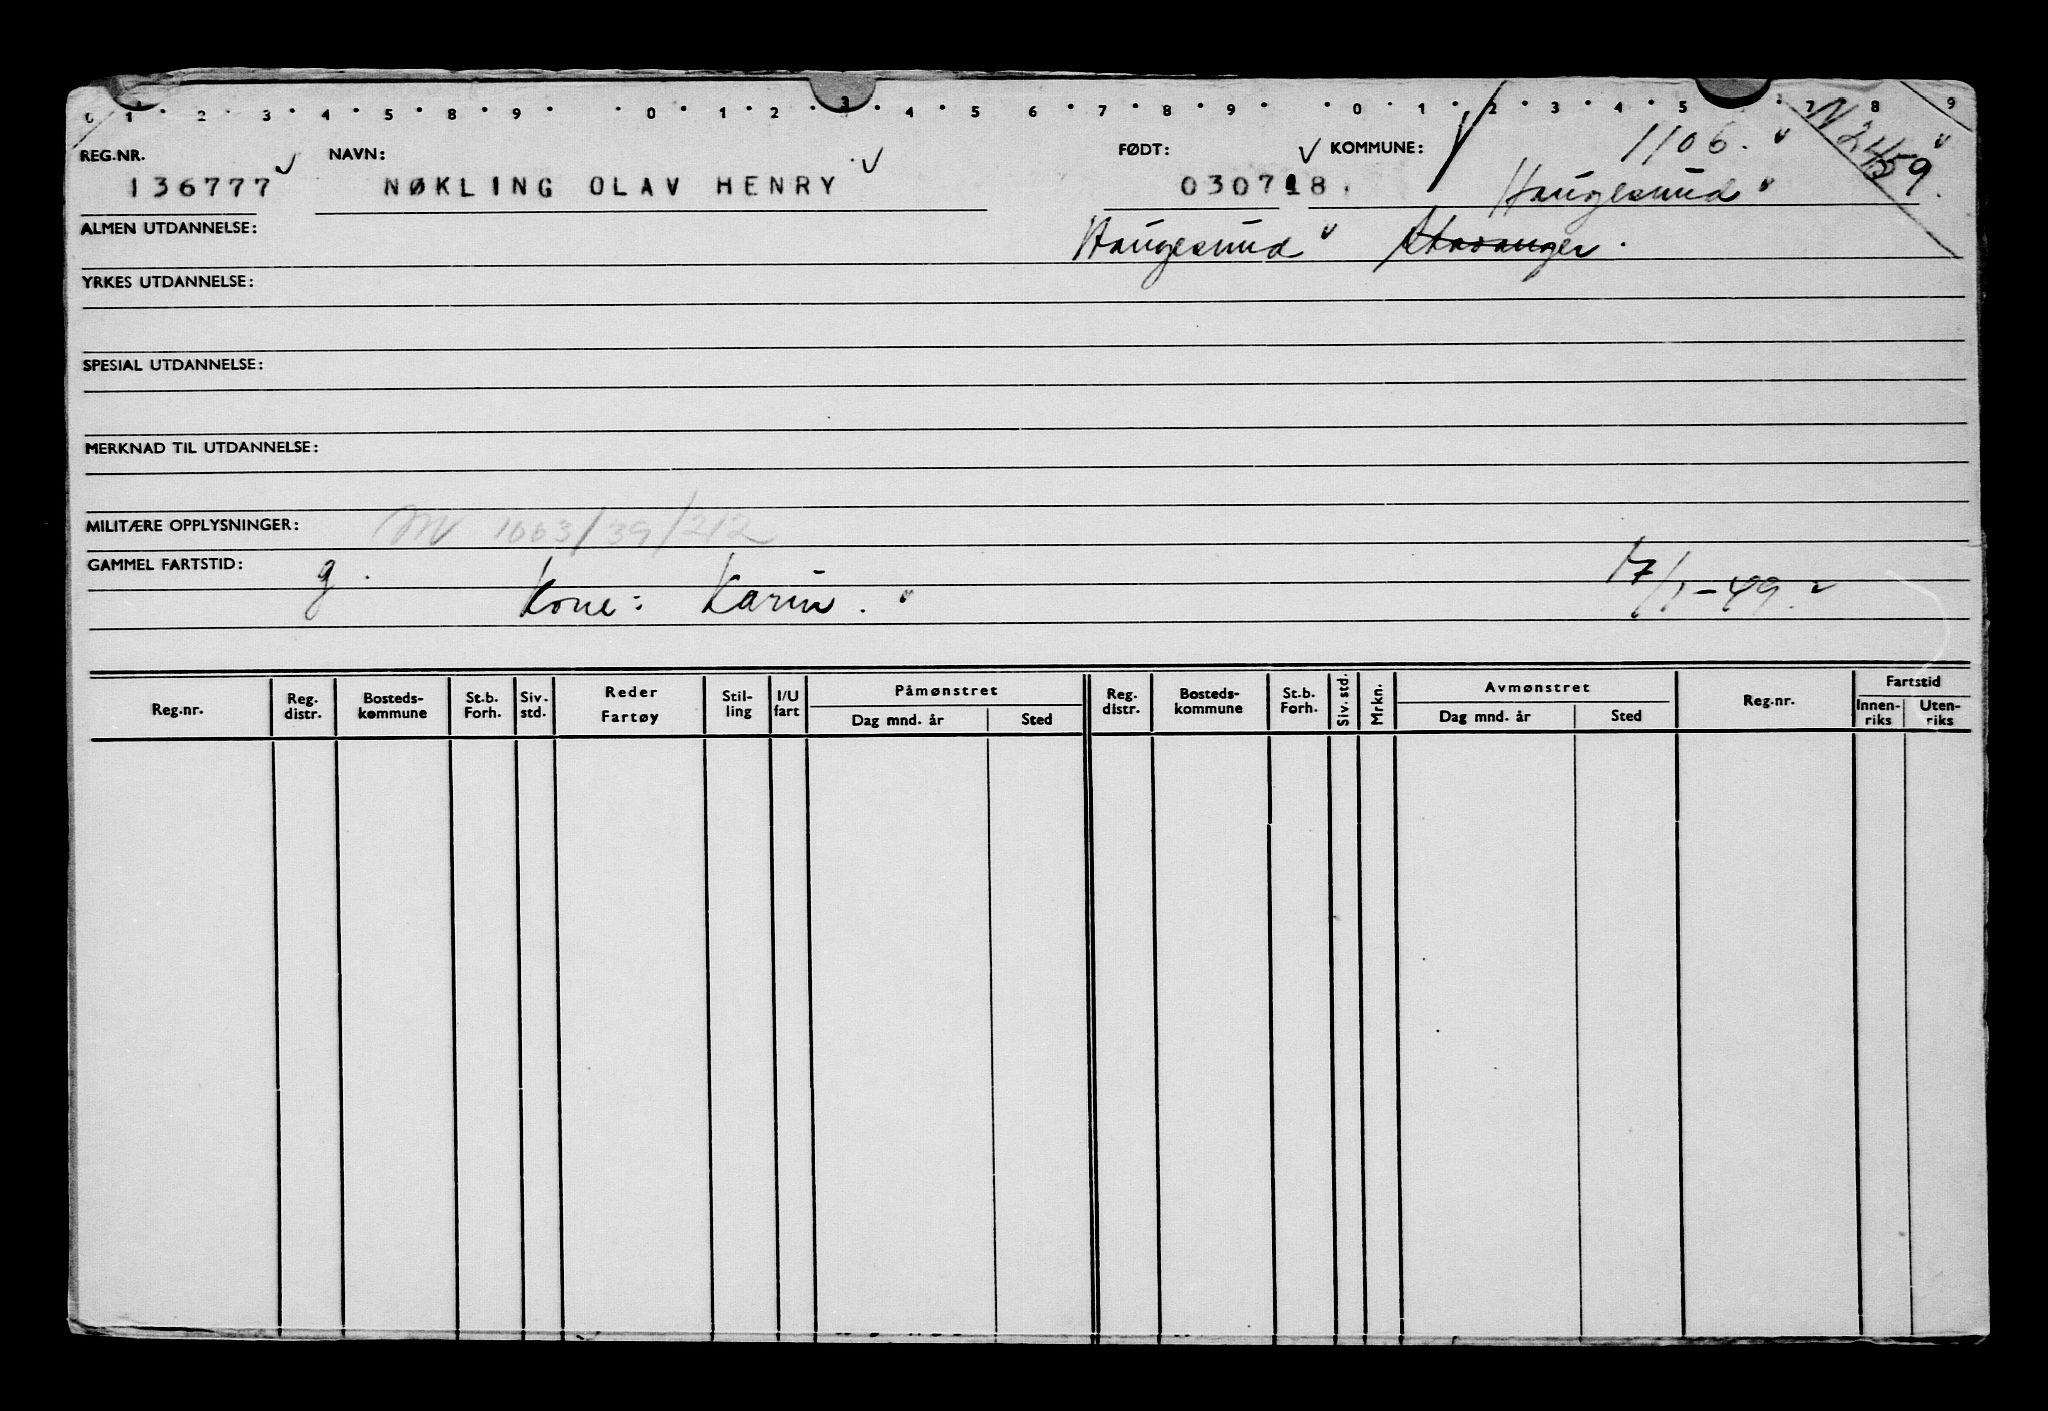 0 1 2 3 4 5 8 9 0 1 2 3 4 5 6 7 8 9 0 1 2 3 4 5 7 8 9
REG.NR. NAVN: FØDT: KOMMUNE: 1106. N 2459.
136777 NØKLING OLAV HENRY 030718. Haugesund
ALMEN UTDANNELSE: Haugesund Stavanger.
YRKES UTDANNELSE:
SPESIAL UTDANNELSE:
MERKNAD TIL UTDANNELSE:
MILITÆRE OPPLYSNINGER: M 1063/39/212
GAMMEL FARTSTID: g.
Kone: Karin. 17/1-49.
Reg.nr. Reg. distr. Bosteds-kommune St.b. Forh. Siv. std. Reder Fartøy Stil-ling I/U fart Påmønstret Dag mnd. år Sted Reg. distr. Bosteds-kommune St.b. Forh. Siv. std. Mrkn. Avmønstret Dag mnd. år Sted Reg.nr. Fartstid Innen-riks Uten-riks